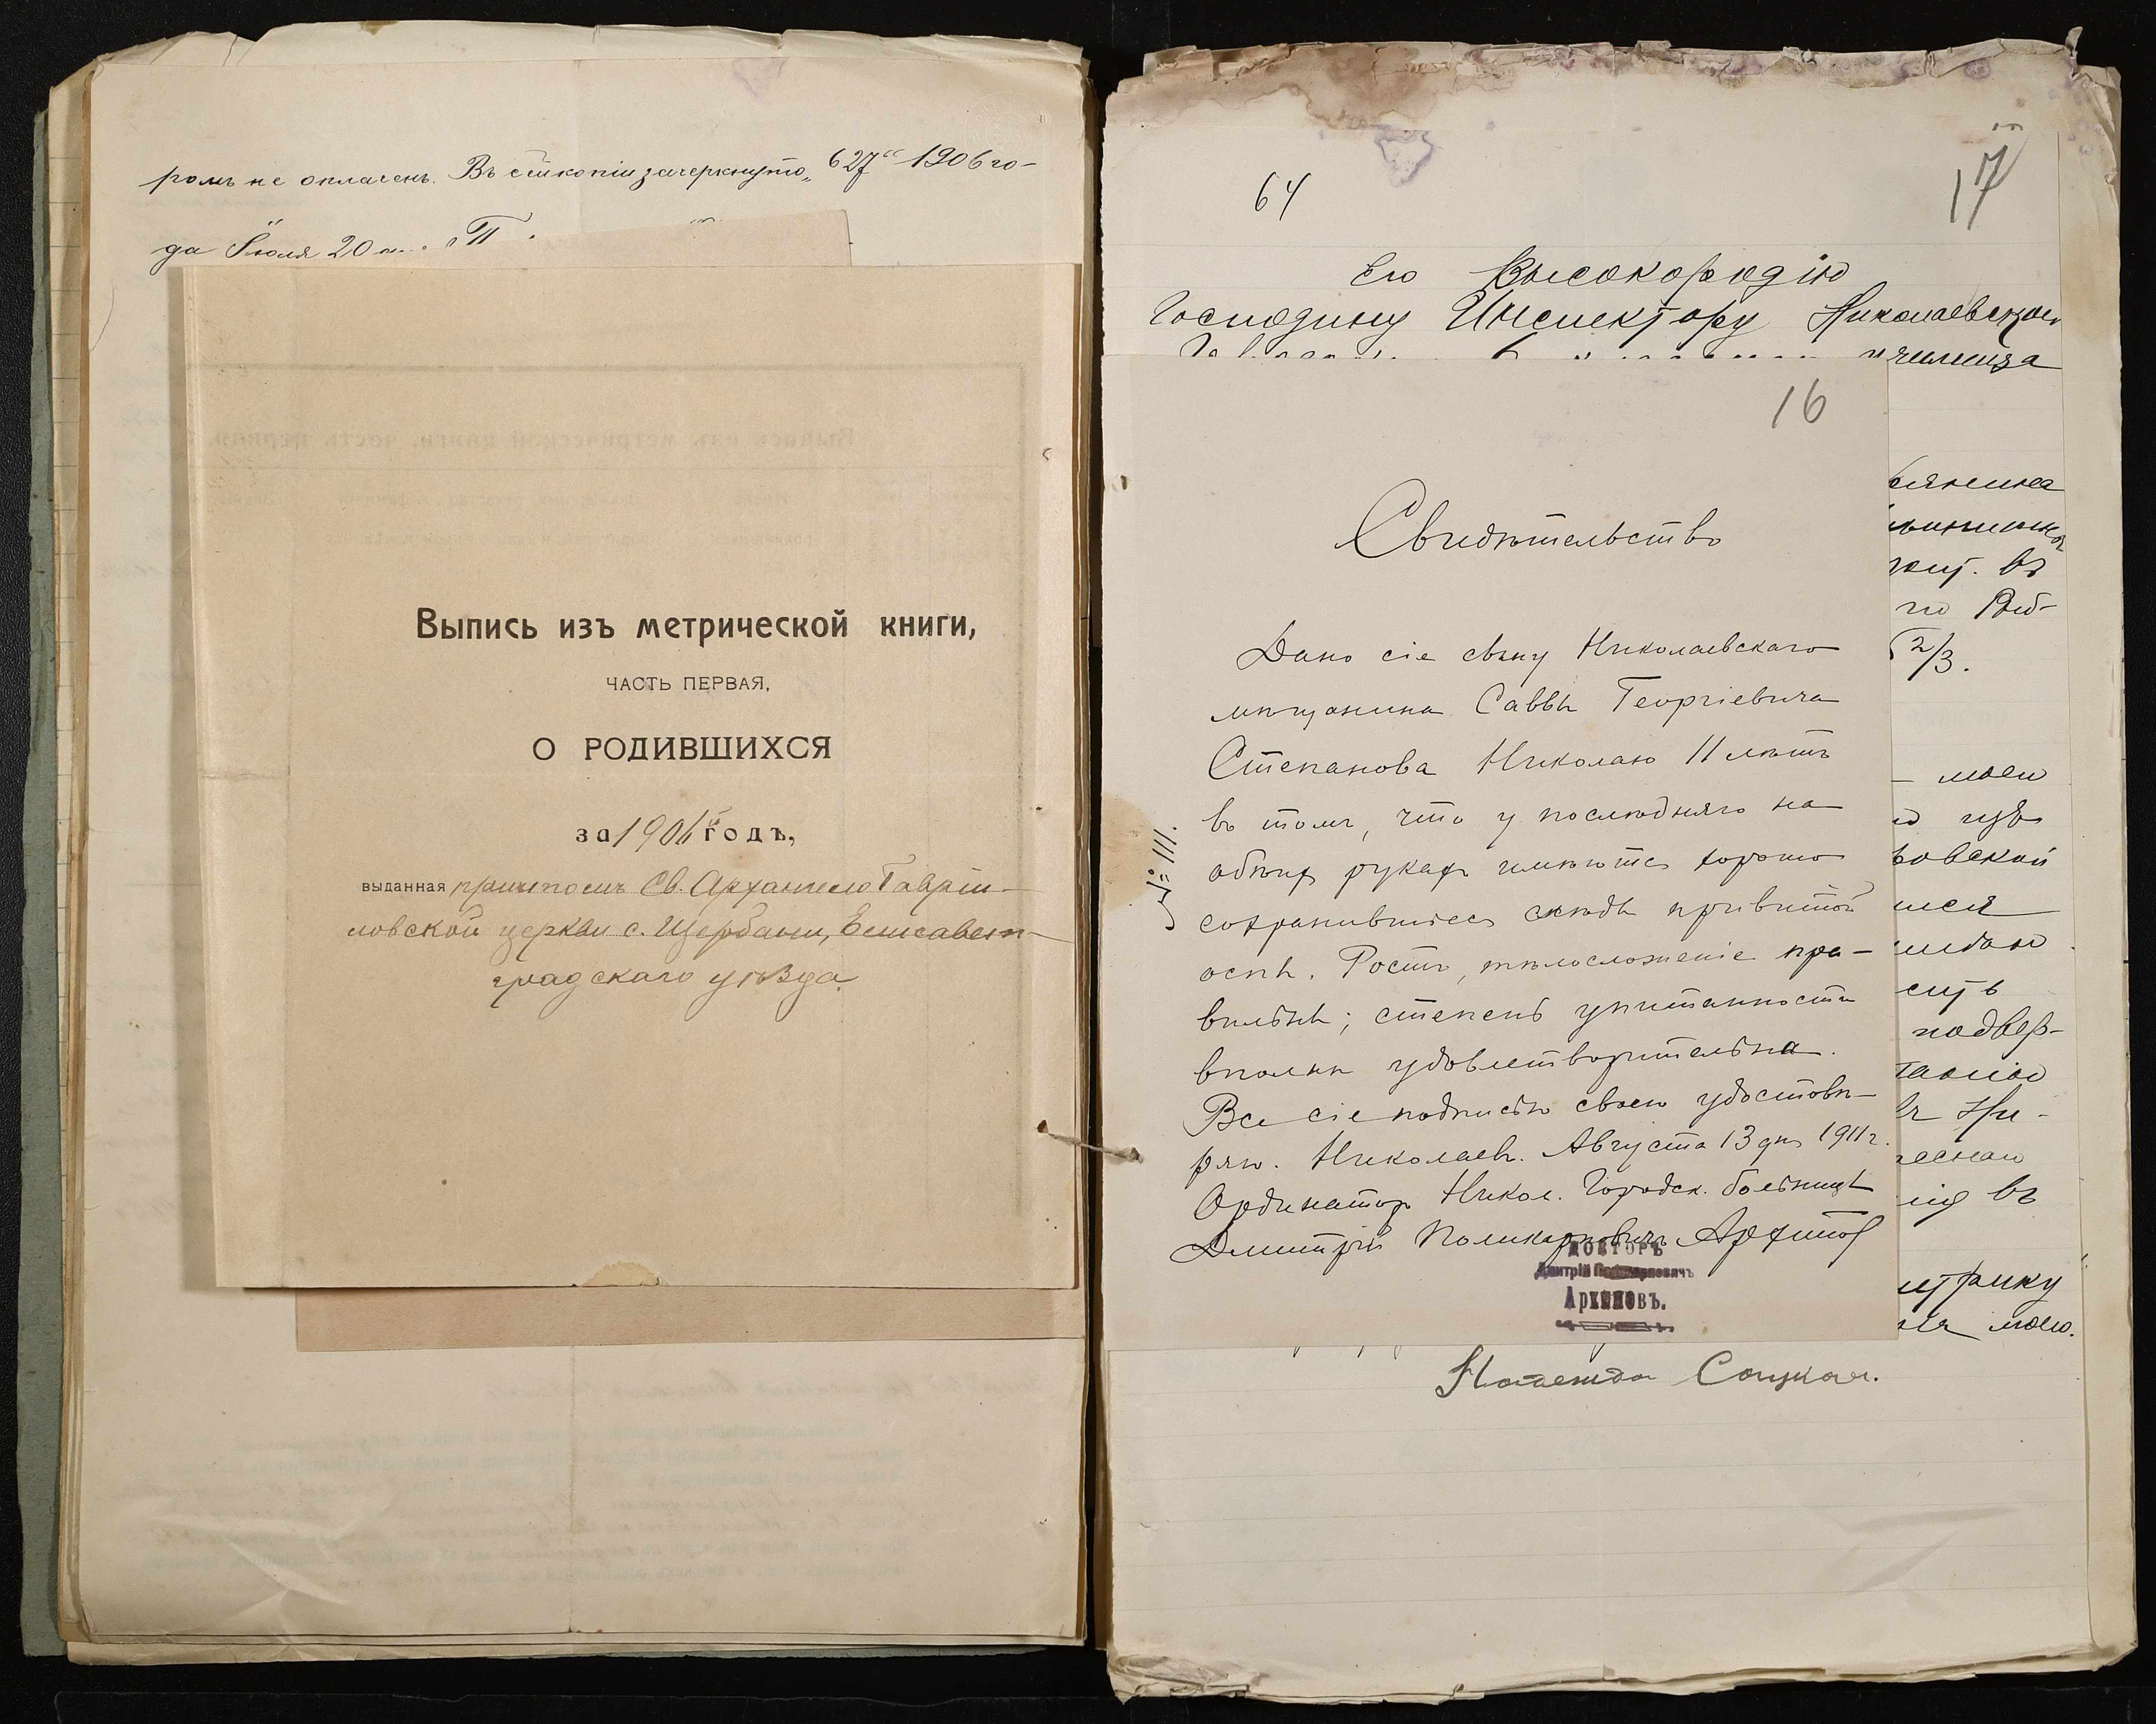 ромъ не оплаченъ. Въ сей копіи зачеркнуто „627“ 1906 го-
да Іюля 20
Выпись изъ метрической книги,
ЧАСТЬ ПЕРВАЯ,
О РОДИВШИХСЯ
за 1901й годъ,
выданная причтомъ Св. Архангело Гаврiи-
ловской церкви с. Щербани, Елисавет-
градскаго уѣзда.
64
17
Его Высокородію
Господину Инспектору Николаевскаго
училища
16
Свидѣтельство
Дано сіе сыну Николаевскаго
мѣщанина Саввы Георгіевича
Степанова Николаю 11 лѣтъ
въ томъ, что у послѣдняго на
обѣихъ рукахъ имѣются хорошо
сохранившіеся слѣды привитой
оспы. Ростъ, тѣлосложеніе пра-
вильны; степень упитанности
вполнѣ удовлетворительна.
Все сіе подписью своею удостовѣ-
ряю. Николаевъ. Августа 13 дня 1911 г.
Ординаторъ Никол. Городск. больницы
Дмитрій Поликарповичъ Архипов
ДОКТОРЪ
Дмитрій Поликарповичъ
Архиповъ.
№ 111.
жит. въ
2/3.
моей
ловской
подвер-
въ Ни-
въ
метрику
моею.
Надежда Соцкая.